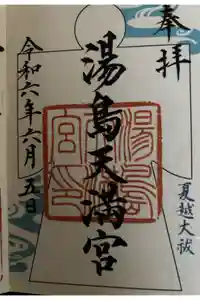 奉拝
湯島天満宮
夏越大祓
令和六年六月五日